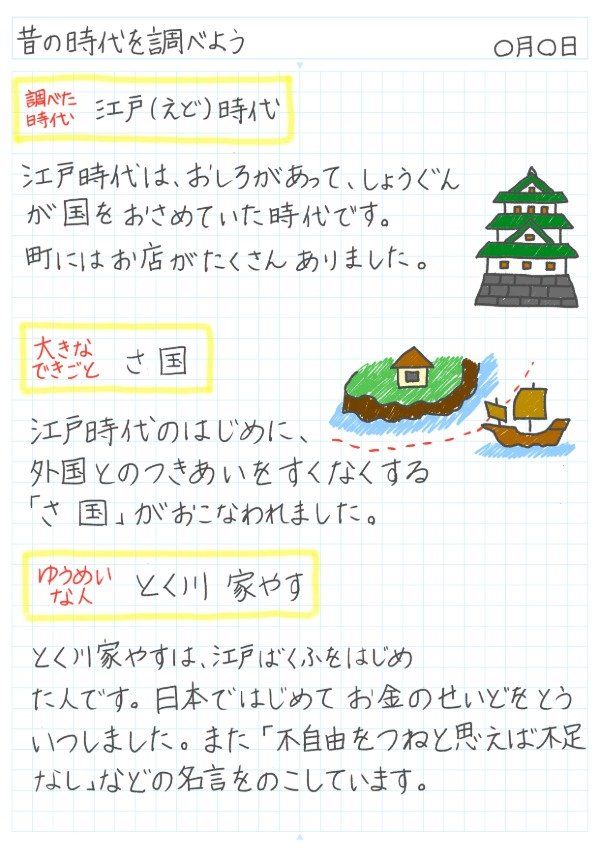 昔の時代を調べよう
〇月〇日
調べた
時代
江戸(えど)時代
江戸時代は、おしろがあって、しょうぐん
が国をおさめていた時代です。
町にはお店がたくさんありました。
大きな
できごと
さ国
江戸時代のはじめに、
外国とのつきあいをすくなくする
「さ国」がおこなわれました。
ゆうめい
な人
とく川 家やす
とく川家やすは、江戸ばくふをはじめ
た人です。日本ではじめてお金のせいどをとう
いつしました。また「不自由をつねと思えば不足
なし」などの名言をのこしています。